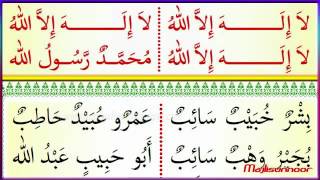 لاَ إِلَـــــهَ إِلاَّ اللهُ لاَ إِلَـــــهَ إِلاَّ اللهُ
لاَ إِلَـــــهَ إِلاَّ اللهُ مُحَمَّدٌ رَّسُولُ اللهُ
بِشْرٌ خُبَيْبٌ سَائِبٌ عَمْرٌو عُبَيْدٌ حَاطِبٌ
بُجَيْرُ وَهْبٌ سَائِبٌ أَبُو حَبِيبٍ عَبْدُ الله
Majlisunnoor